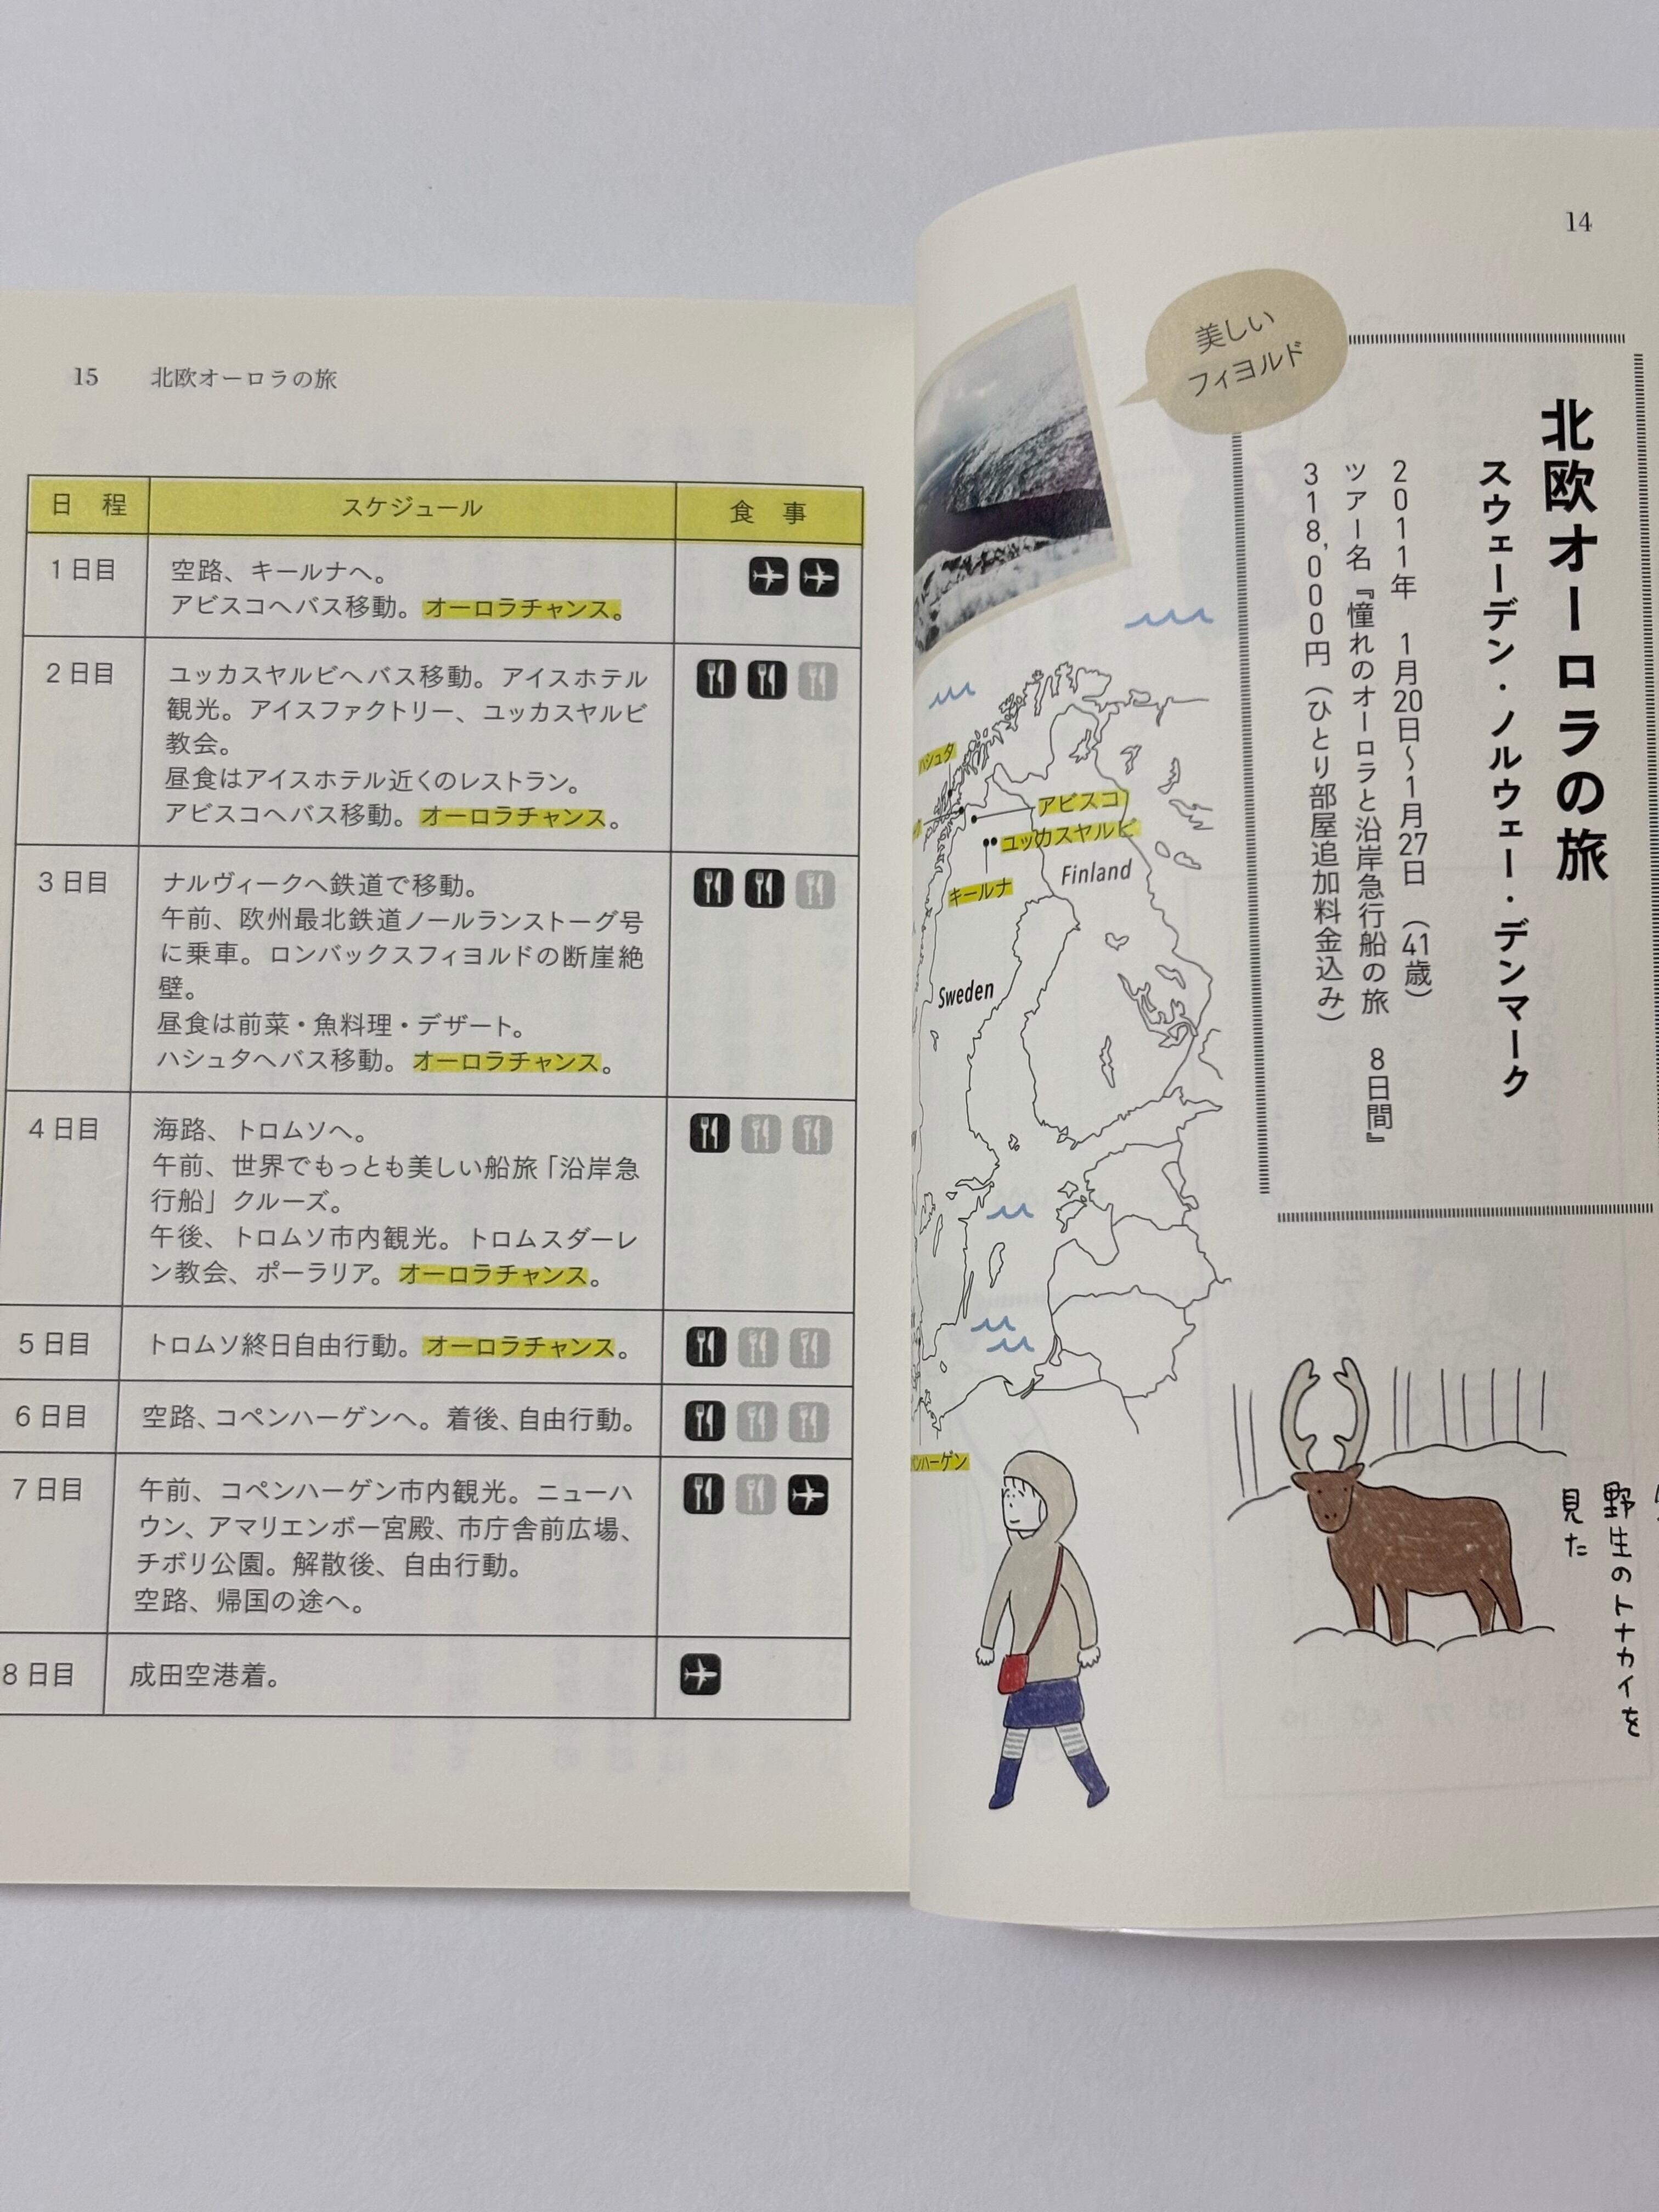 14
北欧オーロラの旅
スウェーデン・ノルウェー・デンマーク
2011年　1月20日〜1月27日　（41歳）
ツアー名『憧れのオーロラと沿岸急行船の旅　8日間』
318,000円（ひとり部屋追加料金込み）
美しい
フィヨルド
ハシュタ
アビスコ
ユッカスヤルビ
キールナ
Finland
Sweden
ペンハーゲン
野生のトナカイを
見た
15　北欧オーロラの旅
日　程　スケジュール　食　事
1日目　空路、キールナへ。
アビスコへバス移動。オーロラチャンス。
2日目　ユッカスヤルビへバス移動。アイスホテル
観光。アイスファクトリー、ユッカスヤルビ
教会。
昼食はアイスホテル近くのレストラン。
アビスコへバス移動。オーロラチャンス。
3日目　ナルヴィークへ鉄道で移動。
午前、欧州最北鉄道ノールランストーグ号
に乗車。ロンバックスフィヨルドの断崖絶
壁。
昼食は前菜・魚料理・デザート。
ハシュタへバス移動。オーロラチャンス。
4日目　海路、トロムソへ。
午前、世界でもっとも美しい船旅「沿岸急
行船」クルーズ。
午後、トロムソ市内観光。トロムスダーレ
ン教会、ポーラリア。オーロラチャンス。
5日目　トロムソ終日自由行動。オーロラチャンス。
6日目　空路、コペンハーゲンへ。着後、自由行動。
7日目　午前、コペンハーゲン市内観光。ニューハ
ウン、アマリエンボー宮殿、市庁舎前広場、
チボリ公園。解散後、自由行動。
空路、帰国の途へ。
8日目　成田空港着。